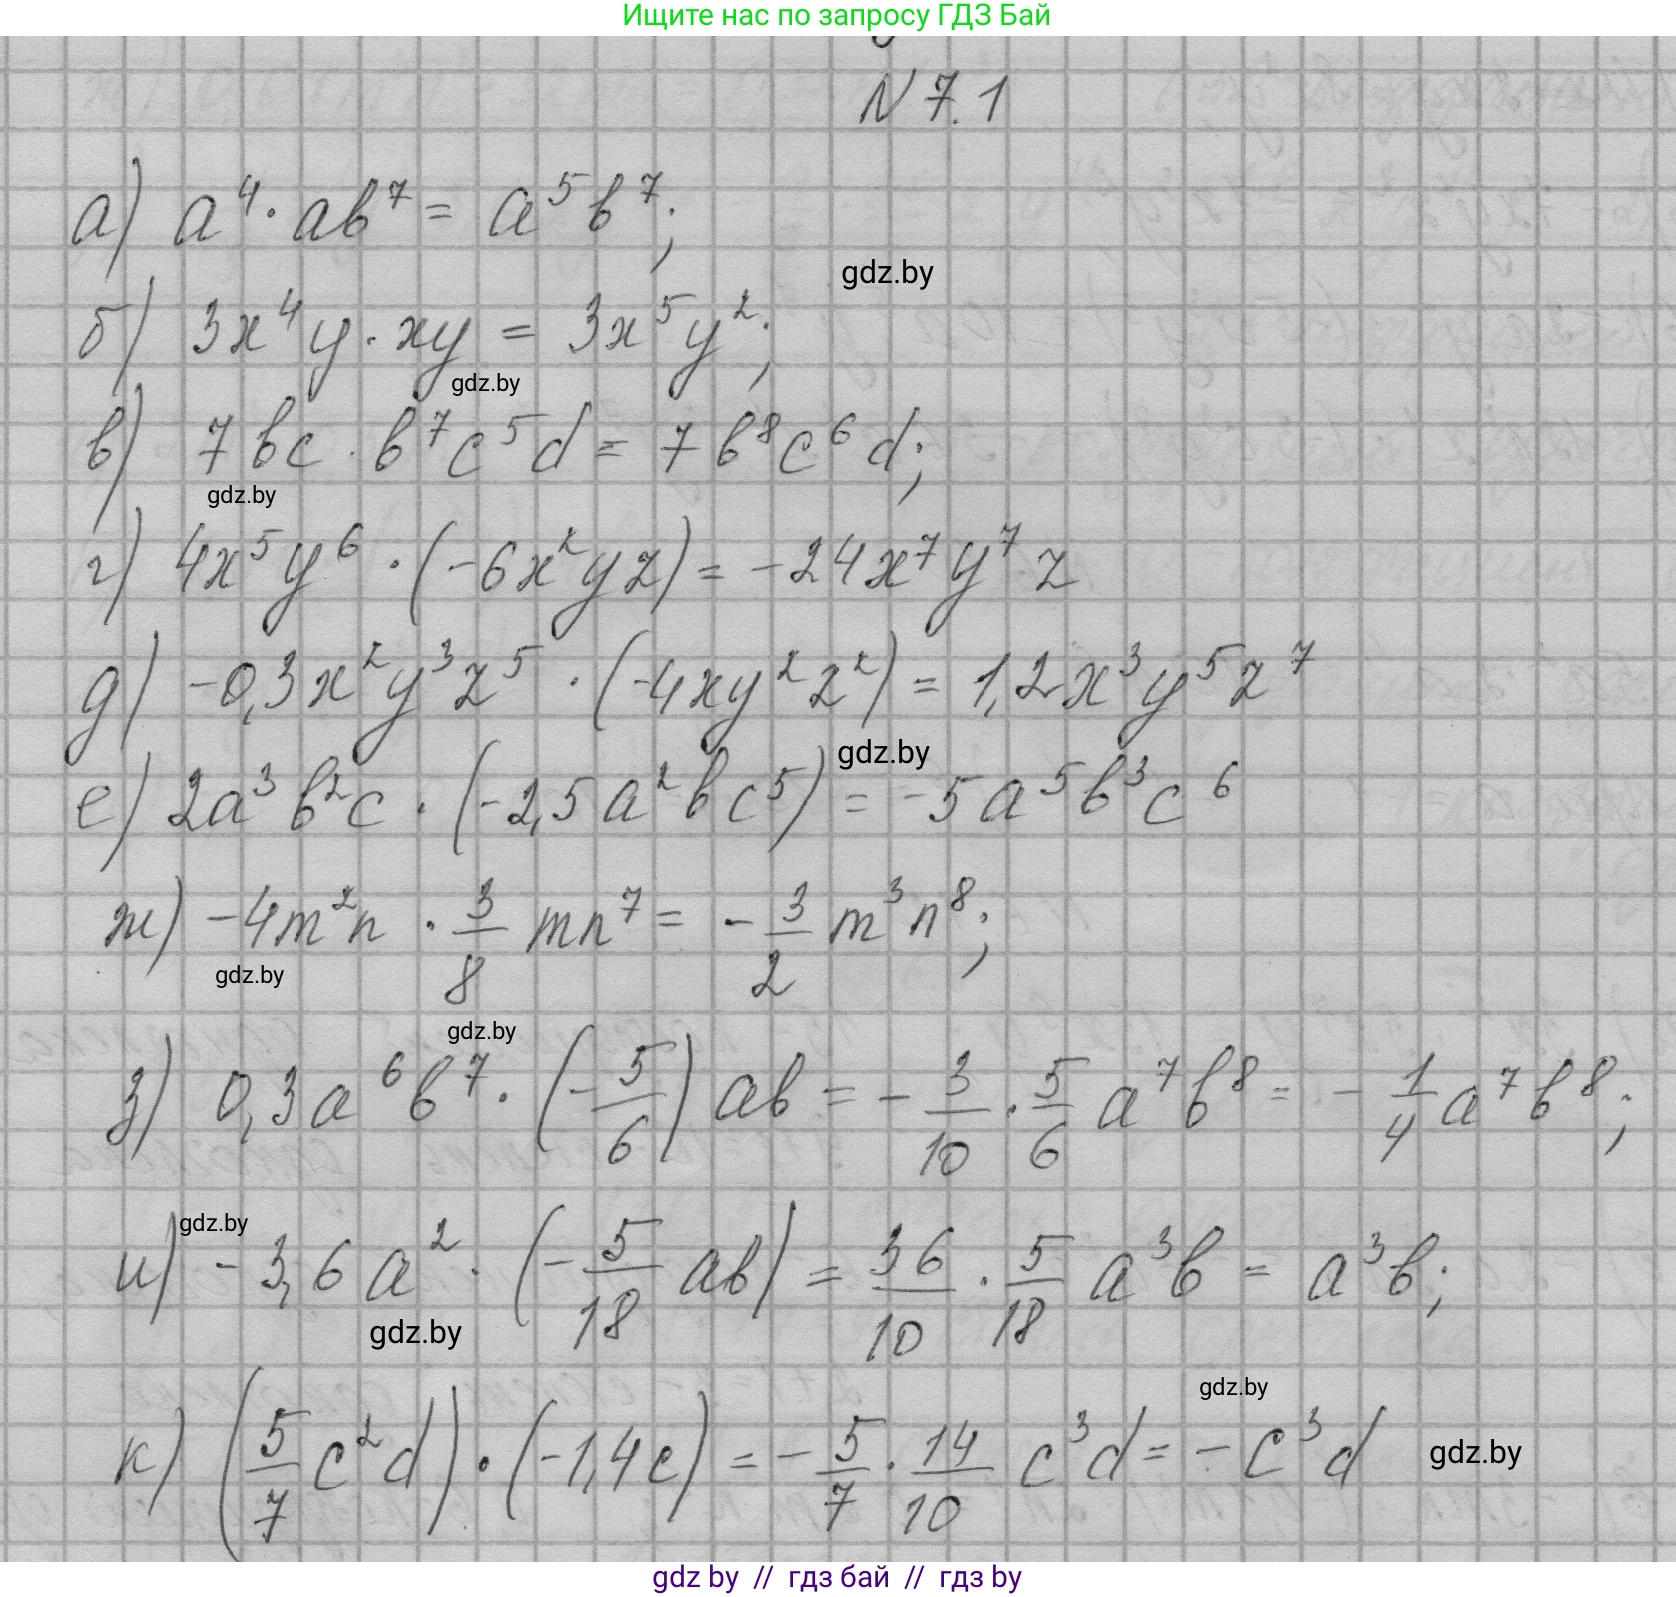 Ищите нас по запросу ГДЗ Бай
N 7.1
а) a⁴ · ab⁷ = a⁵b⁷;
gdz.by
б) 3x⁴y · xy = 3x⁵y²;
gdz.by
в) 7bc · b⁷c⁵d = 7b⁸c⁶d;
gdz.by
г) 4x⁵y⁶ · (-6x²yz) = -24x⁷y⁷z
д) -0,3x²y³z⁵ · (-4xy²z²) = 1,2x³y⁵z⁷
gdz.by
е) 2a³b²c · (-2,5a²bc⁵) = -5a⁵b³c⁶
ж) -4m²n · 3/8 mn⁷ = - 3/2 m³n⁸;
gdz.by
gdz.by
з) 0,3a⁶b⁷ · (-5/6) ab = - 3/10 · 5/6 a⁷b⁸ = - 1/4 a⁷b⁸;
gdz.by
и) -3,6a² · (-5/18 ab) = 36/10 · 5/18 a³b = a³b;
gdz.by
gdz.by
к) (5/7 c²d) · (-1,4c) = - 5/7 · 14/10 c³d = - c³d
gdz.by
gdz by // гдз бай // гдз by